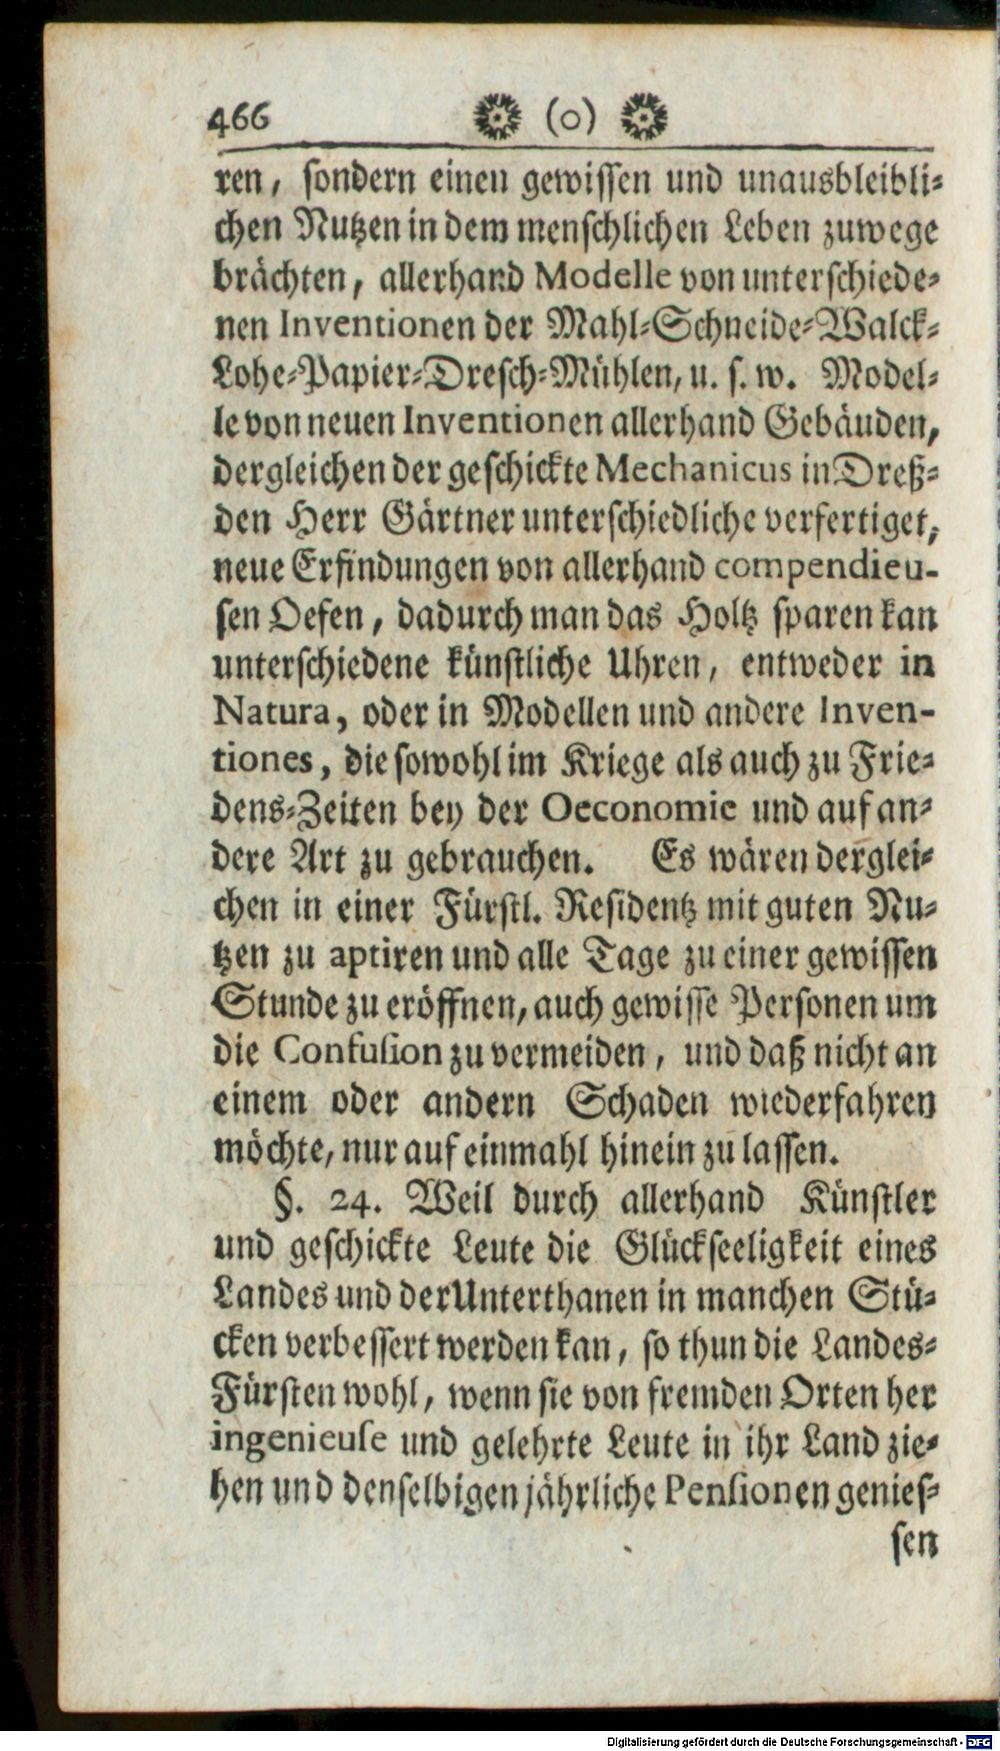 466 (o)
ren, sondern einen gewissen und unausbleibli-
chen Nutzen in dem menschlichen Leben zuwege
brächten, allerhand Modelle von unterschiede-
nen Inventionen der Mahl-Schneide-Walck-
Lohe-Papier-Dresch-Mühlen, u. s. w. Model-
le von neuen Inventionen allerhand Gebäuden,
dergleichen der geschickte Mechanicus in Dreß-
den Herr Gärtner unterschiedliche verfertiget,
neue Erfindungen von allerhand compendieu-
sen Oefen, dadurch man das Holtz sparen kan
unterschiedene künstliche Uhren, entweder in
Natura, oder in Modellen und andere Inven-
tiones, die sowohl im Kriege als auch zu Frie-
dens-Zeiten bey der Oeconomie und auf an-
dere Art zu gebrauchen. Es wären derglei-
chen in einer Fürstl. Residentz mit guten Nu-
tzen zu aptiren und alle Tage zu einer gewissen
Stunde zu eröffnen, auch gewisse Personen um
die Confusion zu vermeiden, und daß nicht an
einem oder andern Schaden wiederfahren
möchte, nur auf einmahl hinein zu lassen.
§. 24. Weil durch allerhand Künstler
und geschickte Leute die Glückseeligkeit eines
Landes und der Unterthanen in manchen Stü-
cken verbessert werden kan, so thun die Landes-
Fürsten wohl, wenn sie von fremden Orten her
ingenieuse und gelehrte Leute in ihr Land zie-
hen und denselbigen jährliche Pensionen genies-
sen
Digitalisierung gefördert durch die Deutsche Forschungsgemeinschaft - DFG